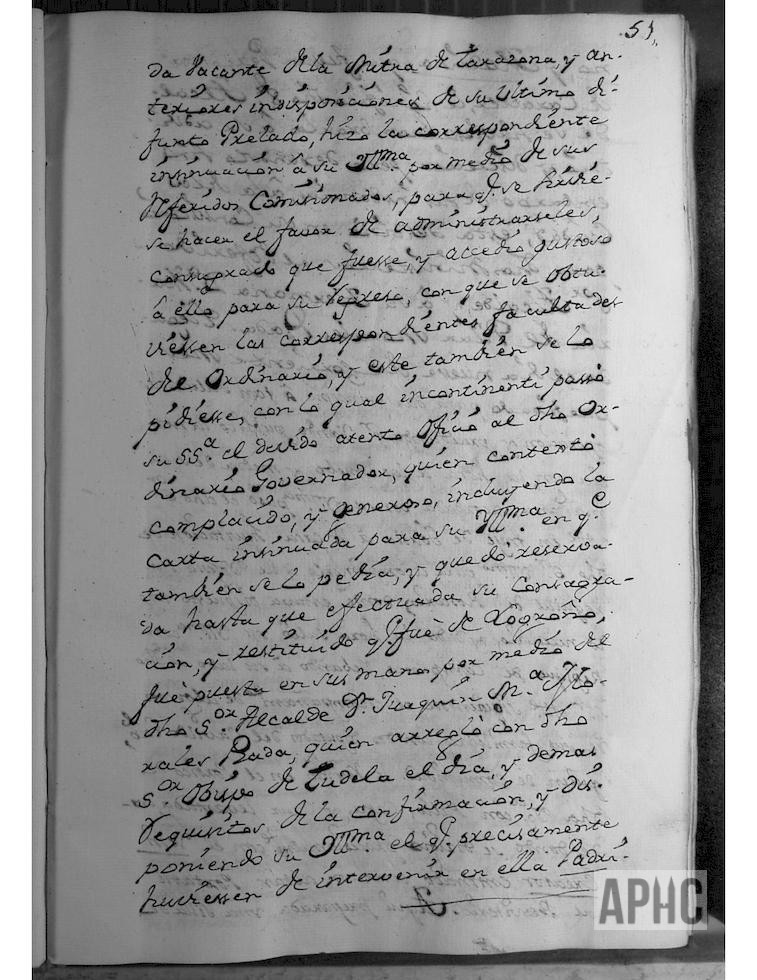 51,
da Vacante de la Mitra de Tarazona, y an-
teriores indisposiciones de su Vltimo di-
funto Prelado, hizo la correspondiente
insinuacion á su Yllma. por medio de sus
Referidos Comisionados, para q. se sirvie-
se hacer el favor de administrarseles,
consagrado que fuesse, y accedió gustoso
á ello para su regreso, con que se obtu-
viessen las correspondientes facultades
del Ordinario, y este tambien se lo
pidiesse, con lo qual incontinenti passó
su SSa. el devido atento Oficio al dho Or-
dinario Governador, quien contextó
complacido, y generoso, incluyendo la
Carta insinuada para su Yllma. en q.e
tambien se lo pedia, y quedó reserva-
da hasta que efectuada su Consagra-
cion, y restituido q. fuè de Logroño,
fuè puesta en sus manos por medio del
dho Sor. Alcalde Dn. Juaquin Ma. Mo-
rales Rada, quien arregló con dho
Sor. Obispo de Tudela el dia, y demas
Requisitos de la confirmacion, y dis-
poniendo su Yllma. el q. precisamente
huviessen de intervenir en ella Padri-
APHC